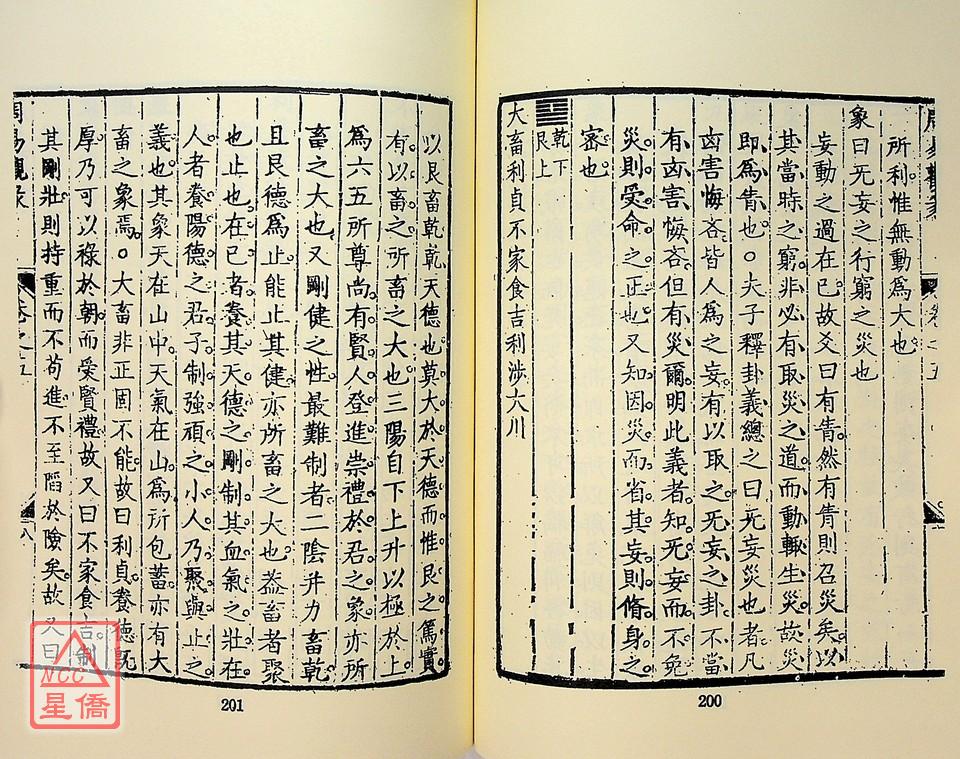 所利惟無動爲大也
象曰无妄之行窮之災也
妄動之過在已故爻曰有眚然有眚則召災矣以
其當時之窮非必有取災之道而動輙生災故災
即爲眚也○夫子釋卦義總之曰无妄災也者凡
凶害悔吝皆人爲之妄有以取之无妄之卦不當
有凶害悔吝但有災爾明此義者知无妄而不免
災則受命之正也又知因災而省其妄則脩身之
密也
乾下
艮上
大畜利貞不家食吉利涉大川
200
周易觀彖
卷之五
八
以艮畜乾乾天德也莫大於天德而惟艮之篤實
有以畜之所畜之大也三陽自下上升以極於上
爲六五所尊尚有賢人登進崇禮於君之象亦所
畜之大也又剛健之性最難制者二陰并力畜乾
且艮德爲止能止其健亦所畜之大也蓋畜者聚
也止也在已者養其天德之剛制其血氣之壯在
人者養陽德之君子制強頑之小人乃聚與止之
義也其象天在山中天氣在山爲所包蓄亦有大
畜之象焉○大畜非正固不能故曰利貞養德旣
厚乃可以祿於朝而受賢禮故又曰不家食吉制
其剛壯則持重而不苟進不至蹈於險矣故又曰
201
NCC
星僑